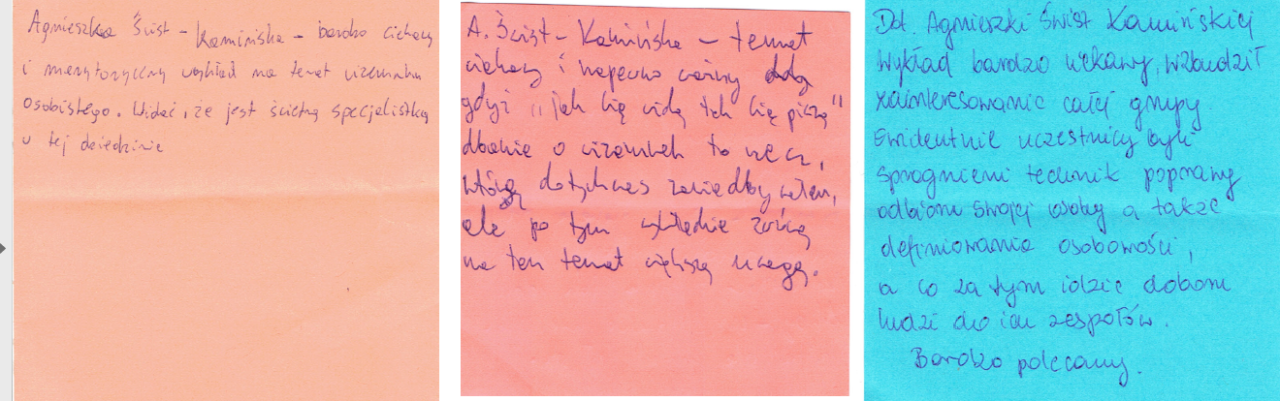 Agnieszka Świst - Kamińska - bardzo ciekawy
i merytoryczny wykład na temat wizerunku
osobistego. Widać, że jest świetną specjalistką
w tej dziedzinie
A. Świst - Kamińska - temat
ciekawy i napewno ważny
gdyż "jak cię widzą tak cię piszą"
dbanie o wizerunek to rzecz,
którą dotychczas zaniedbywałem,
ale po tym wykładzie zwrócę
na ten temat większą uwagę.
Dot. Agnieszki Świst Kamińskiej
Wykład bardzo ciekawy, wzbudził
zainteresowanie całej grupy
Ewidentnie uczestnicy byli
spragnieni technik poprawy
odbioru swojej osoby a także
definiowania osobowości,
a co za tym idzie doboru
ludzi do ich zespołów.
Bardzo polecamy.